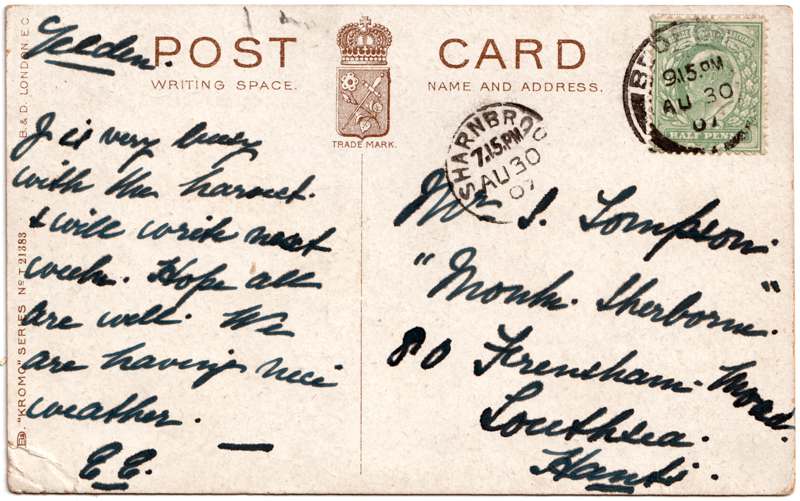 Yelden.
POST CARD
WRITING SPACE.
NAME AND ADDRESS.
TRADE MARK.
B. & D. LONDON E.C.
ED. "KROMO" SERIES No T 21383
J is very busy
with the harvest.
& will write next
week. Hope all
are well. We
are having nice
weather.
E.E.
SHARNBROO
7.15.PM
AU 30
07
BEDFORD
9.15.PM
AU 30
07
HALF PENNY
Mr S. Tompson.
"Monk. Sherborne."
80 Frensham. Road.
Southsea.
Hants.